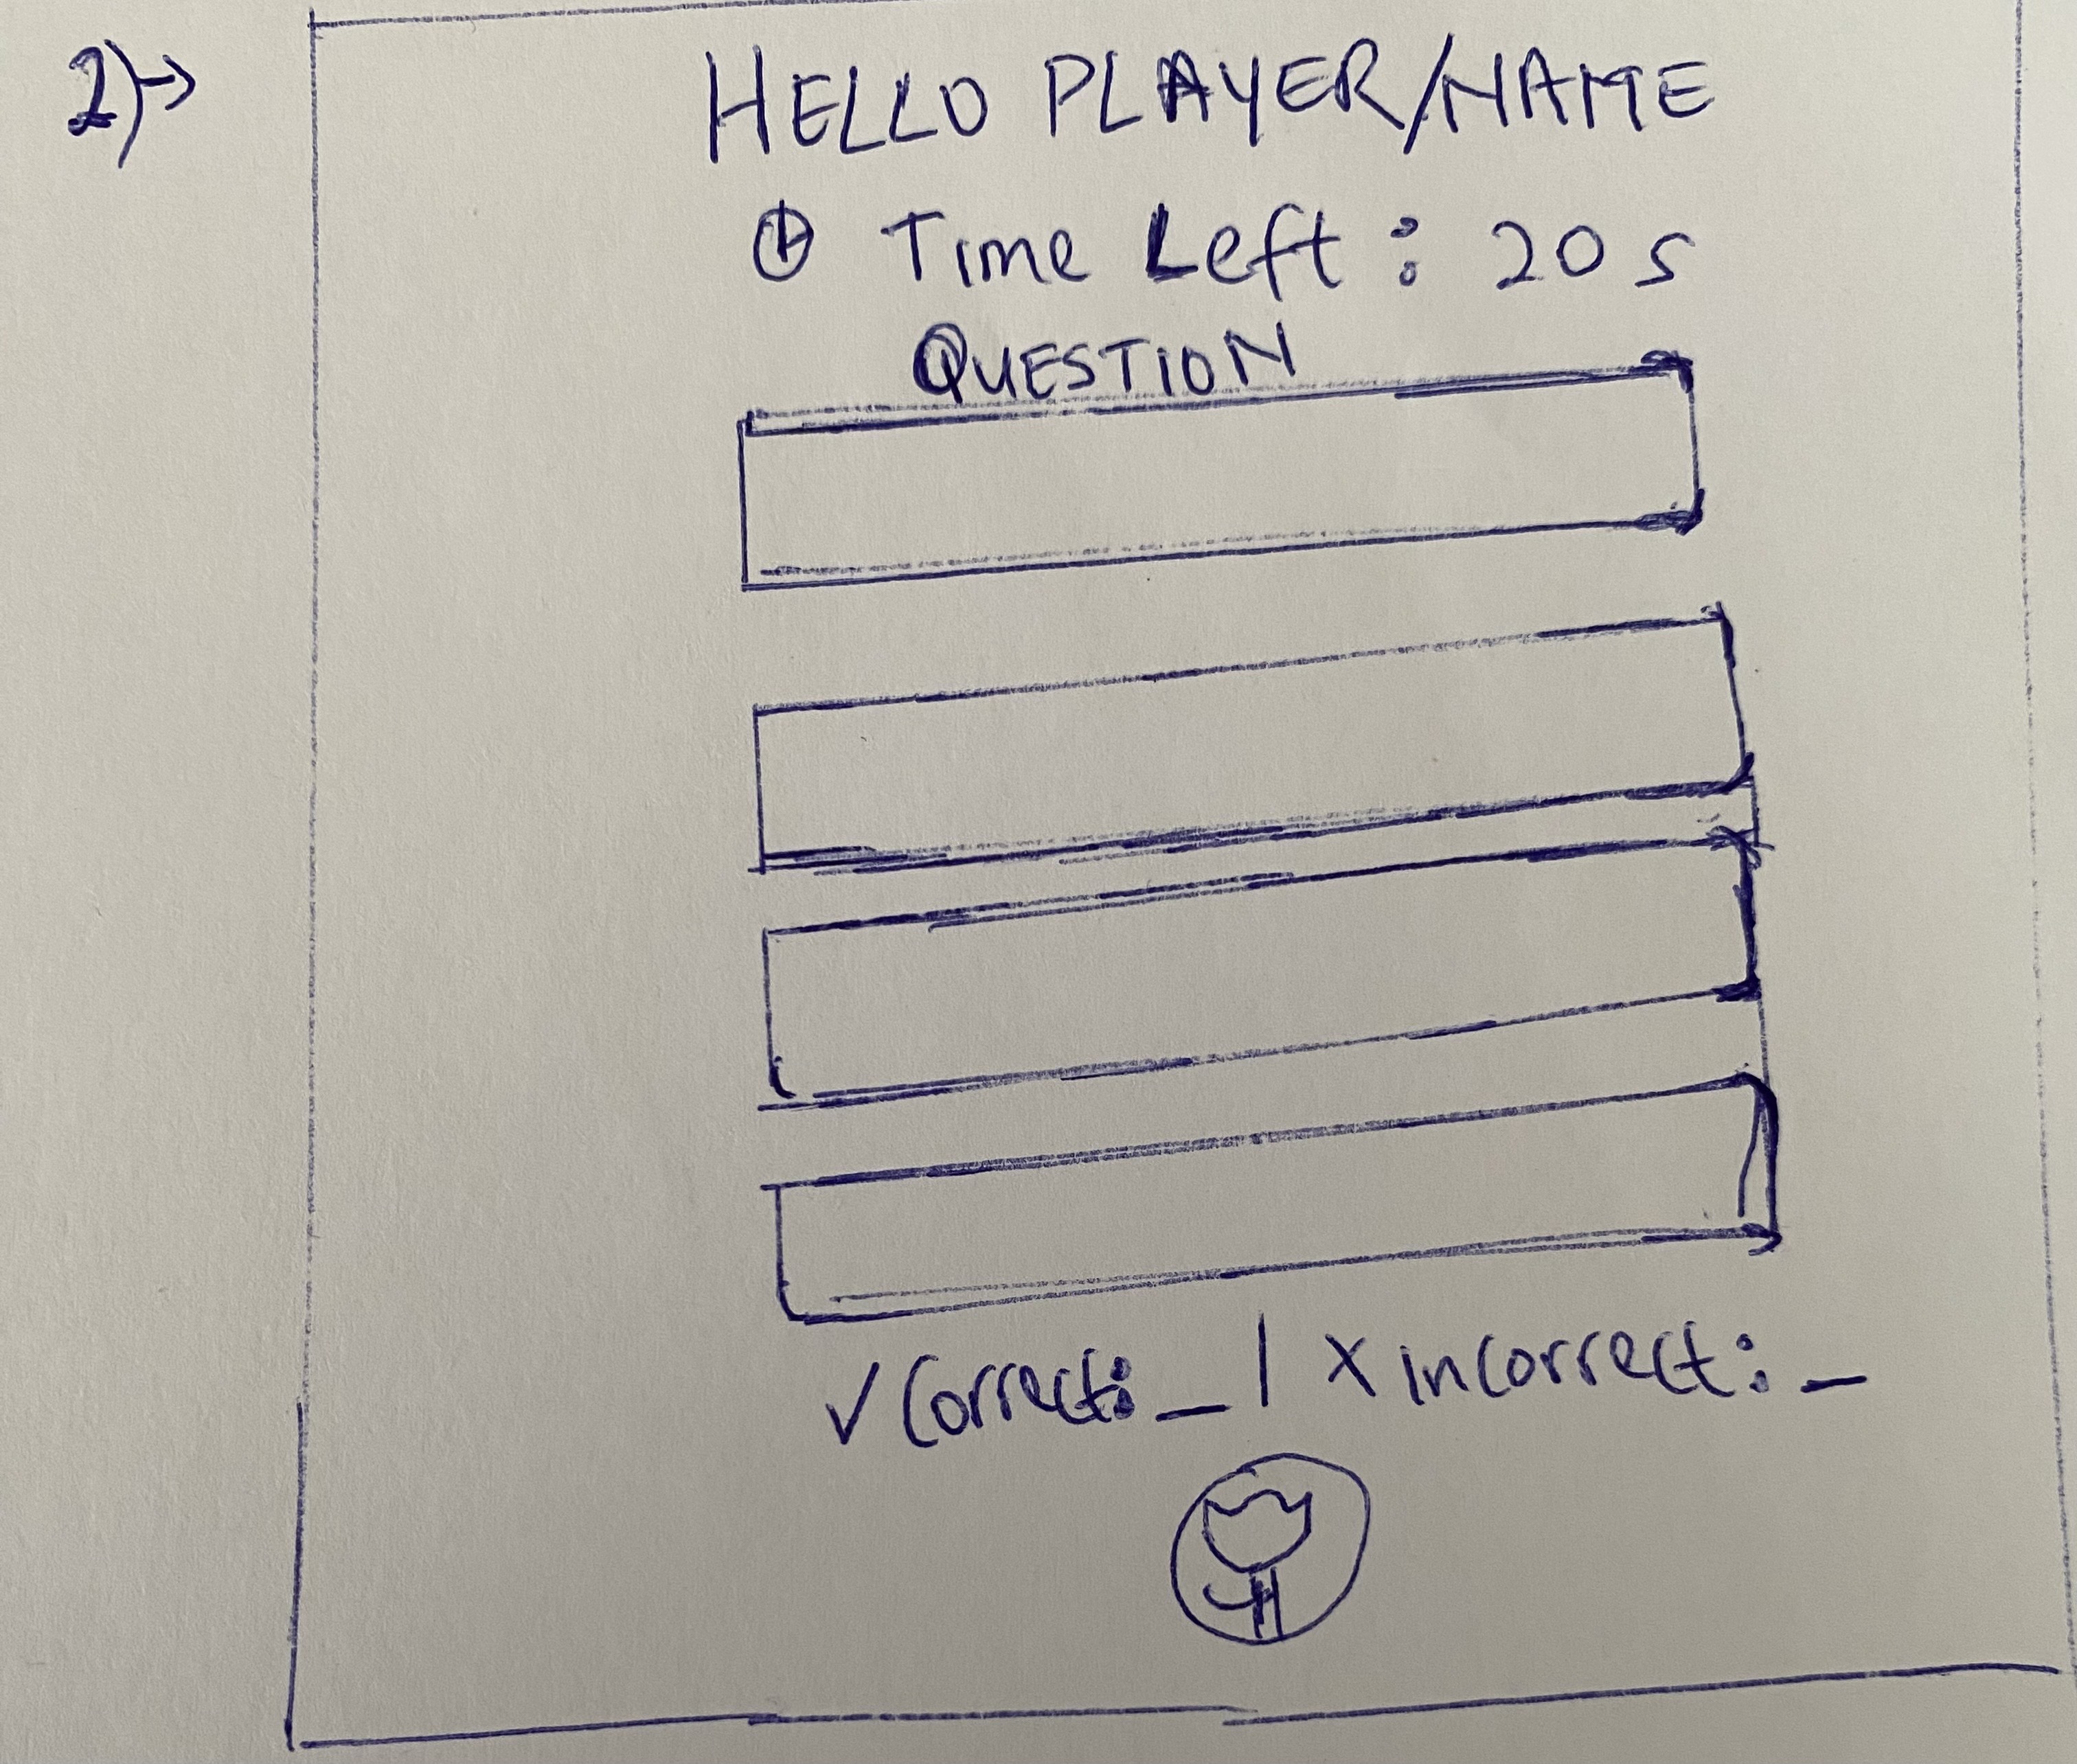 2)→
HELLO PLAYER/NAME
Time Left: 20 s
QUESTION
✓ Correct: _ | x incorrect: _